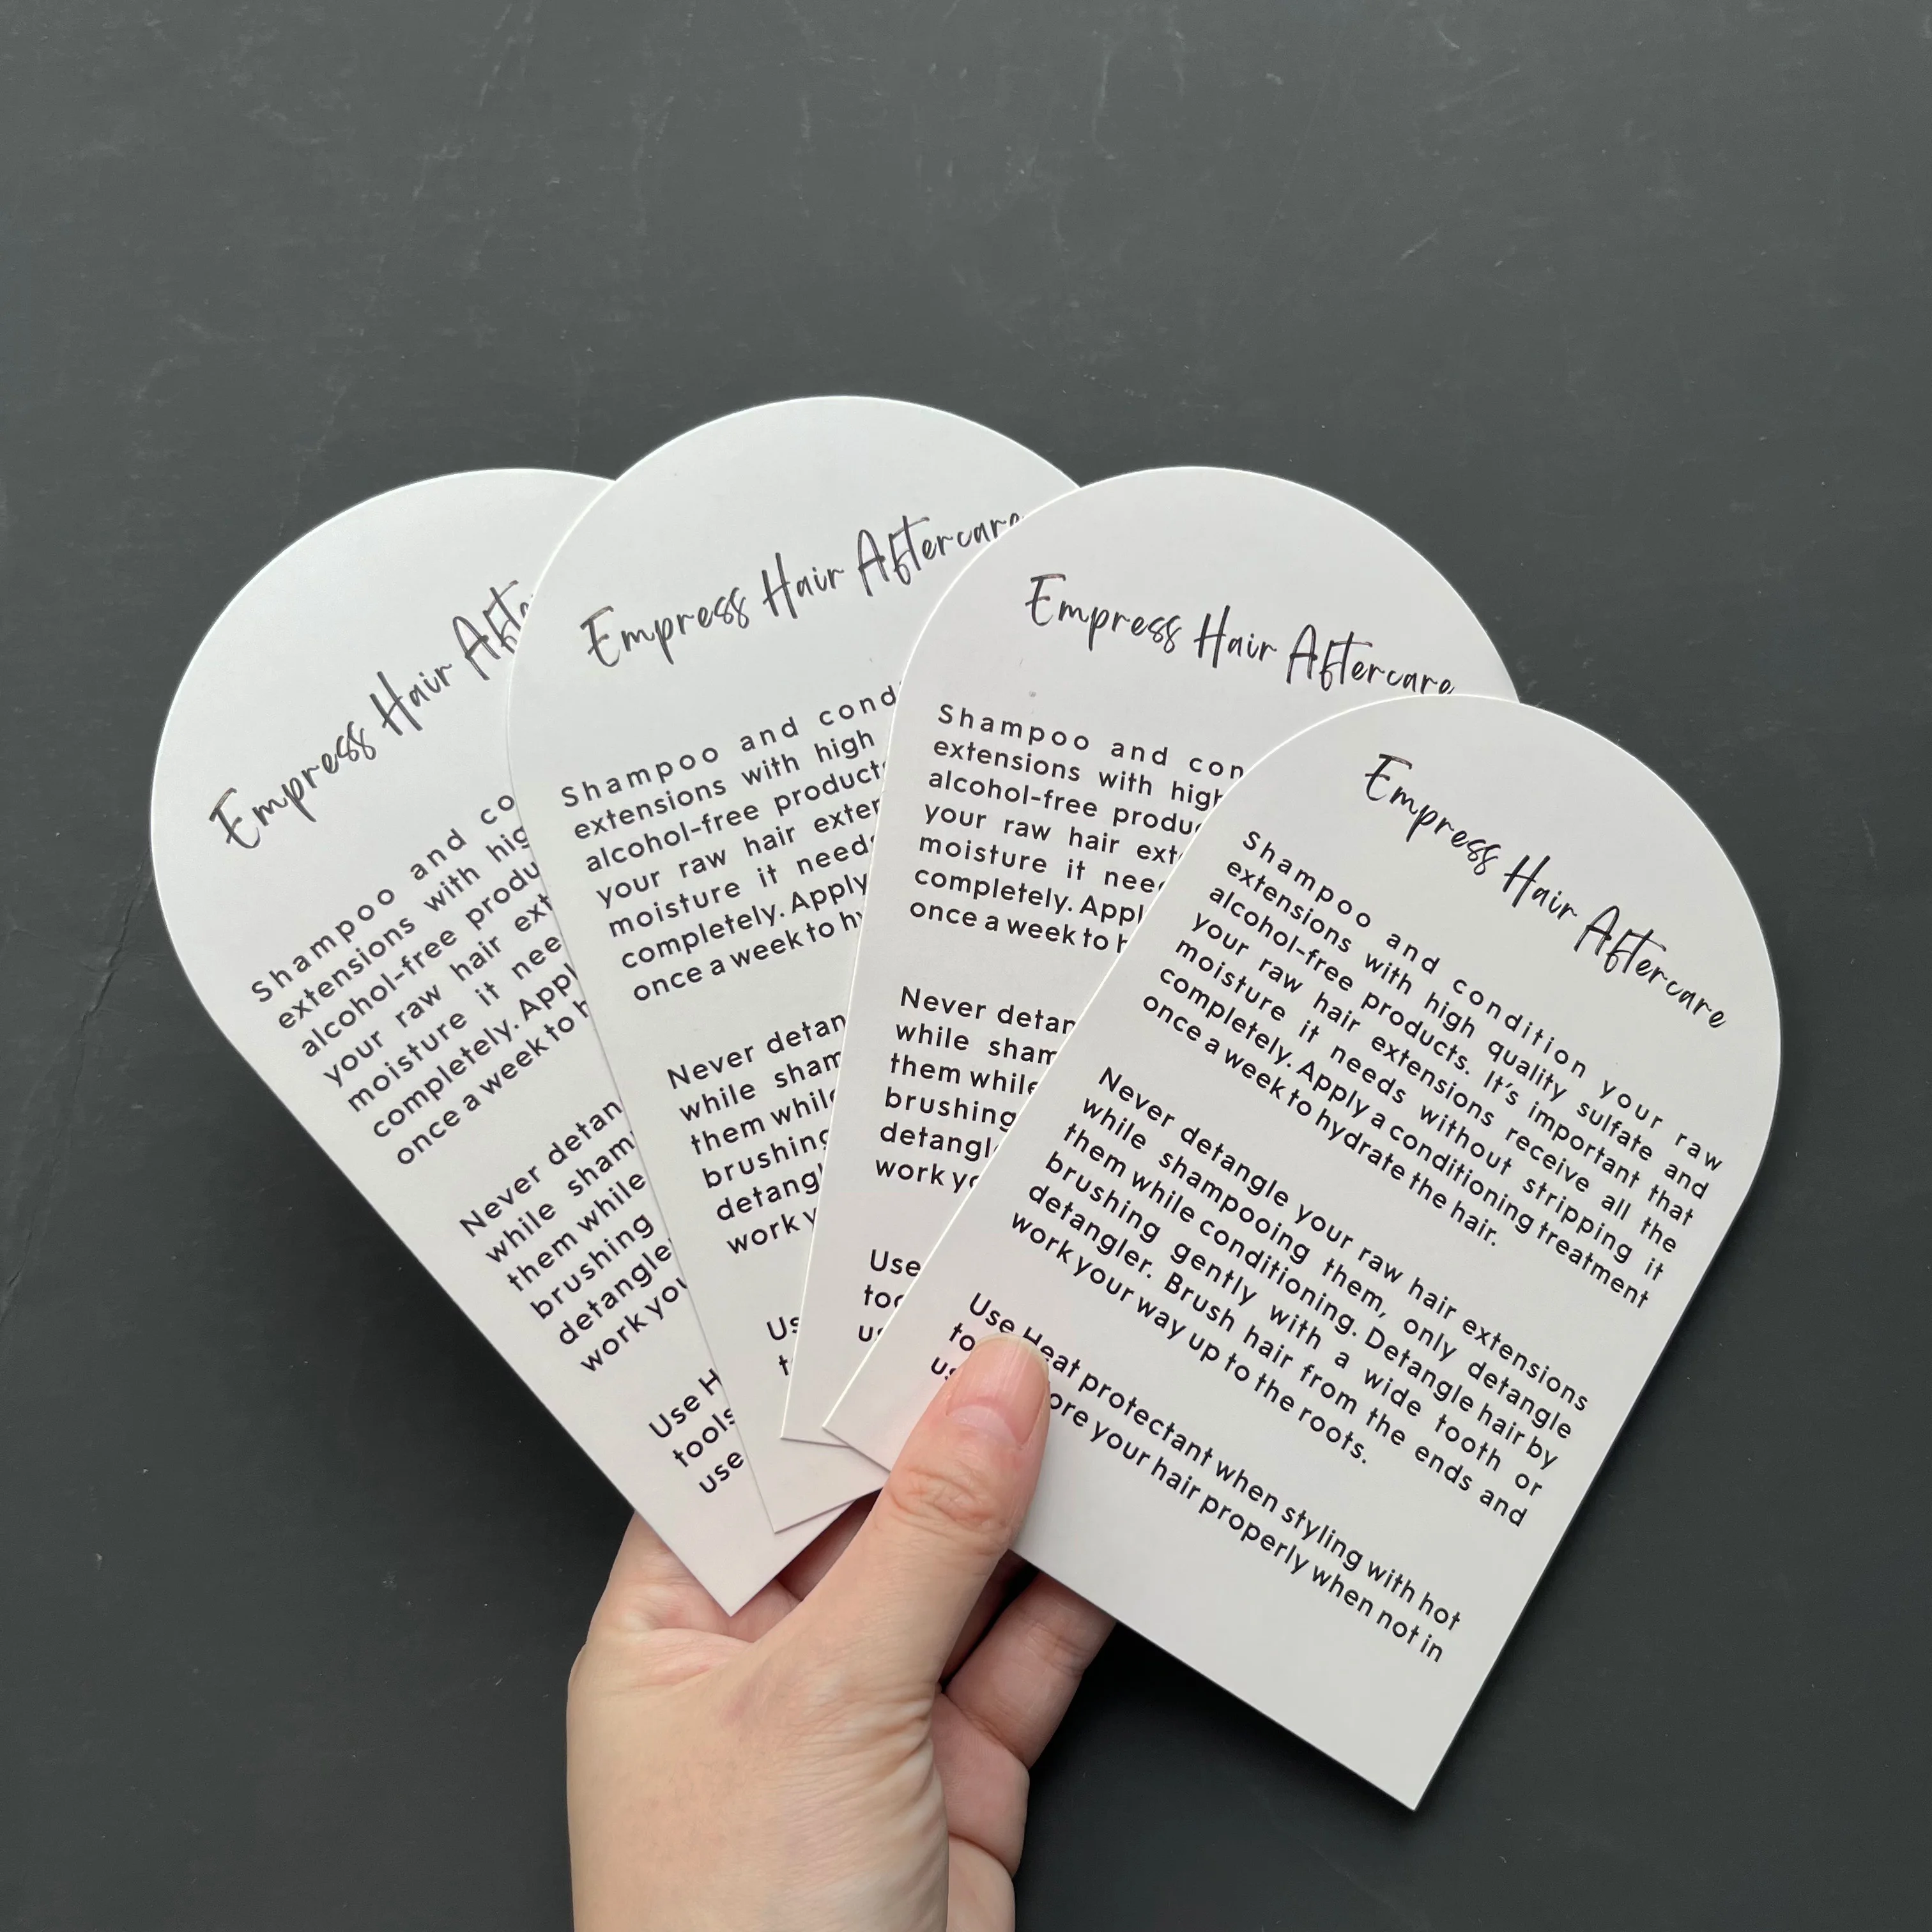 Empress Hair Afte
Shampoo and co
extensions with hig
alcohol-free produ
your raw hair ext
moisture it nee
completely. Appl
once a week to h
Never detan
while sham
them while
brushing
detangle
work you
Use H
tools
use
Empress Hair Aftercare
Shampoo and cond
extensions with high
alcohol-free product
your raw hair exter
moisture it needs
completely. Apply
once a week to hy
Never detan
while sham
them while
brushing
detang
work y
Us
t
Empress Hair Aftercare
Shampoo and con
extensions with high
alcohol-free produ
your raw hair ext
moisture it nee
completely. Appl
once a week to h
Never detan
while sham
them while
brushing
detangl
work yo
Use
too
us
Empress Hair Aftercare
Shampoo and condition your raw
extensions with high quality sulfate and
alcohol-free products. It's important that
your raw hair extensions receive all the
moisture it needs without stripping it
completely. Apply a conditioning treatment
once a week to hydrate the hair.
Never detangle your raw hair extensions
while shampooing them, only detangle
them while conditioning. Detangle hair by
brushing gently with a wide tooth or
detangler. Brush hair from the ends and
work your way up to the roots.
Use Heat protectant when styling with hot
to ore your hair properly when not in
us